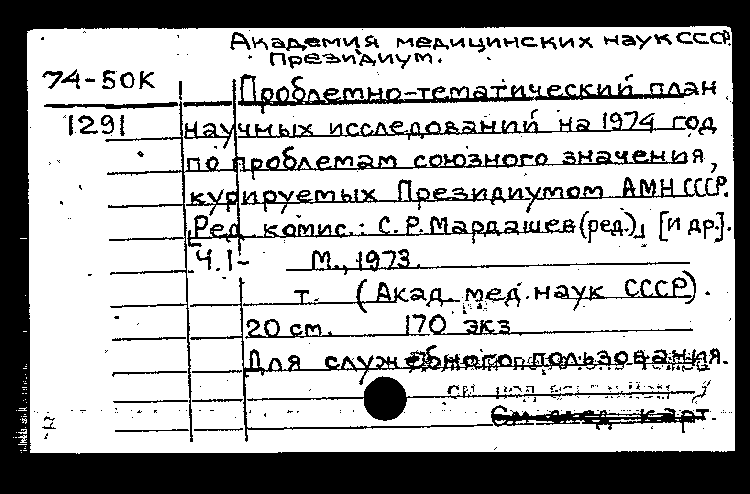 Академия медицинских наук СССР.
Президиум.
74-50К
Проблемно-тематический план
1291 научных исследований на 1974 год
по проблемам союзного значения,
курируемых Президиумом АМН СССР.
[Ред. комис.: С.Р. Мардашев (ред.)], [и др.].
Ч. 1- М., 1973.
т. (Акад. мед. наук СССР).
20 см. 170 экз
Для служебного пользования.
см под
См след. карт.